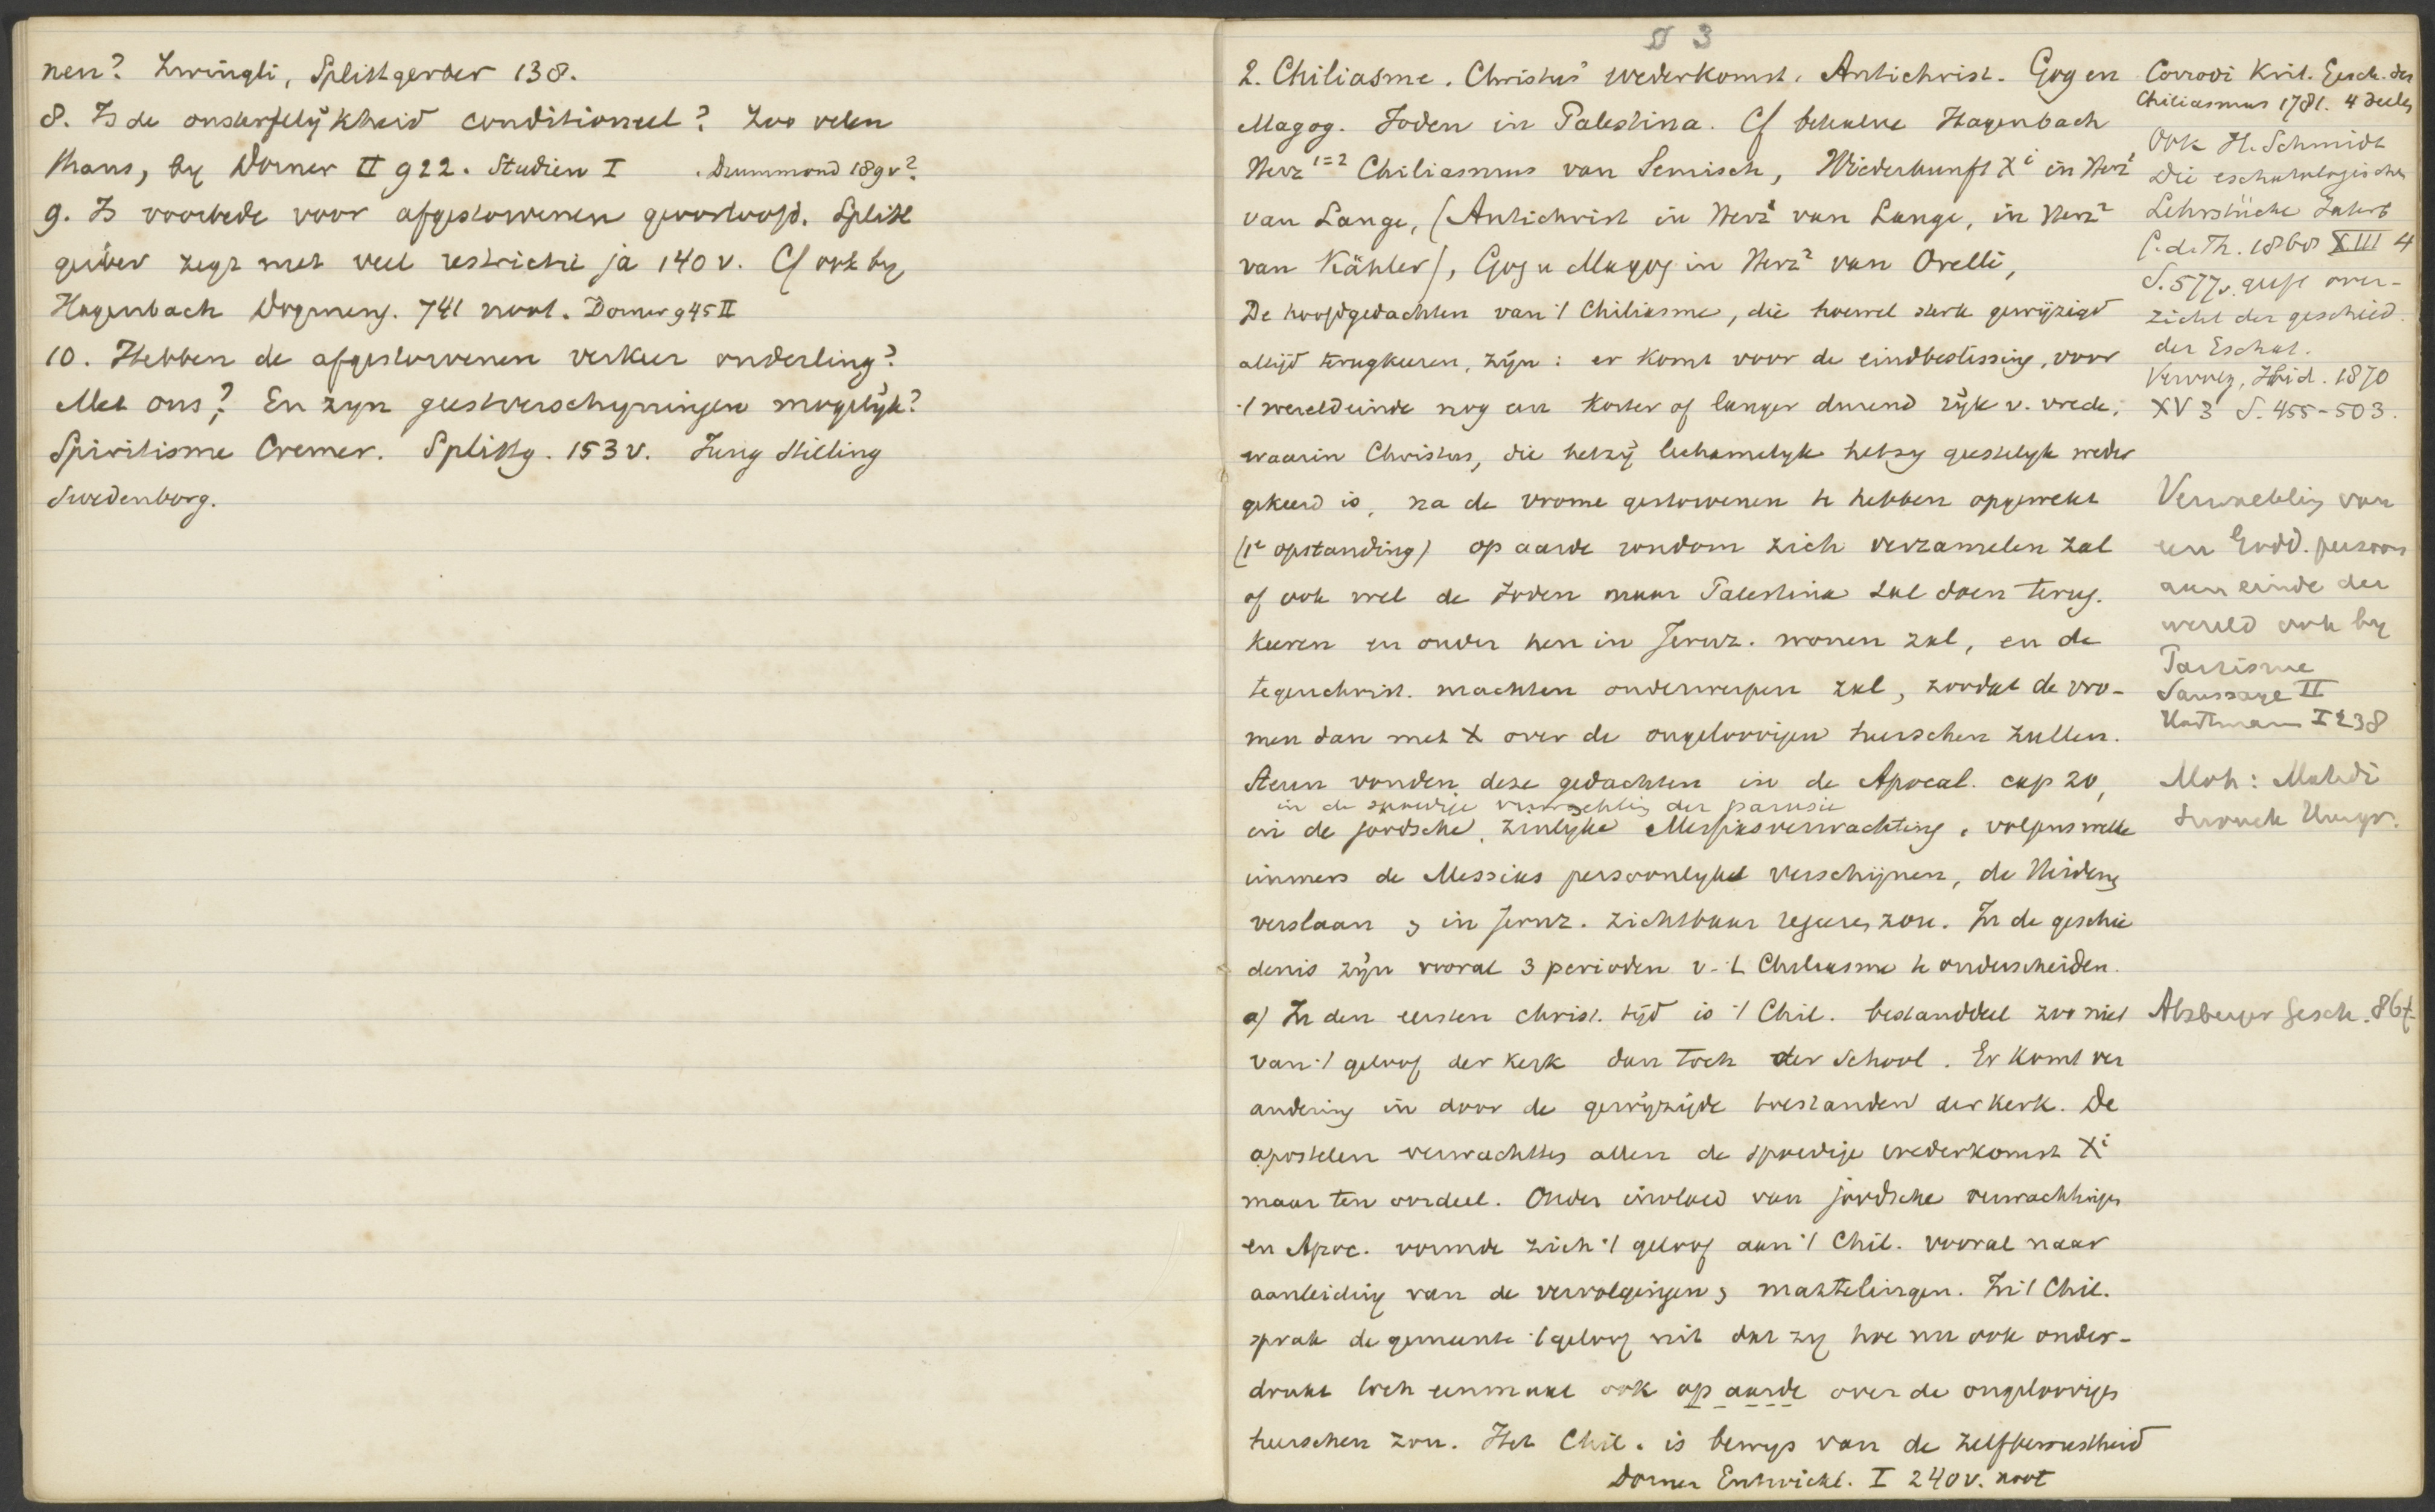 nen? Zwingli, Splittgerber 138.
8. Is de onsterfelijkheid conditioneel? Zoo velen
thans, by Dorner II 922. Studien I . Drummond 189v?
9. Is voorbede voor afgestorvenen geoorloofd. Splitt
gerber zegt met veel restrictie ja 140 v. Cf ook by
Hagenbach Dogmeng. 741 noot. Dorner 945 II
10. Hebben de afgestorvenen verkeer onderling?
Met ons? En zyn geestverschyningen mogelyk?
Spiritisme Cremer. Splittg. 153 v. Jung Stilling
Swedenborg.
§ 3
2. Chiliasme. Christus' wederkomst. Antichrist. Gog en
Magog. Joden in Palestina. Cf behalve Hagenbach
Herz 1=2 Chiliasmus van Semisch, Wiederkunft Xi in Herz1
van Lange, (Antichrist in Herz1 van Lange, in Herz2
van Kähler), Gog u Magog in Herz2 van Orelli,
De hoofdgedachten van 't Chiliasme, die hoewel sterk gewijzigd
altijd terugkeeren, zijn: er komt voor de eindbeslissing, voor
't wereldeinde nog een korter of langer durend rijk v. vrede,
waarin Christus, die hetzij lichamelyk hetzy geestelyk weder
gekeerd is, na de vrome gestorvenen te hebben opgewekt
(1e opstanding) op aarde rondom zich verzamelen zal
of ook wel de Joden naar Palestina zal doen terug-
keeren en onder hen in Jeruz. wonen zal, en de
tegenchrist. machten onderwerpen zal, zoodat de vro-
men dan met X over de ongeloovigen heerschen zullen.
Steun vonden deze gedachten in de Apocal. cap 20,
in de spoedige verwachting der parusie
in de joodsche, zinlyke Messiasverwachting, volgens welke
immers de Messias persoonlyk verschijnen, de Heidenen
verslaan & in Jeruz. zichtbaar regeeren zou. In de geschie
denis zijn vooral 3 perioden v. 't Chiliasme te onderscheiden.
a) In den eersten christ. tijd is 't Chil. bestanddeel zoo niet
van 't geloof der kerk dan toch der School. Er komt ver
andering in door de gewijzigde toestanden der kerk. De
apostelen verwachtten allen de spoedige wederkomst Xi
maar ten oordeel. Onder invloed van joodsche verwachtingen
en Apoc. vormde zich 't geloof aan 't Chil. vooral naar
aanleiding van de vervolgingen & martelingen. In 't Chil.
sprak de gemeente 't geloof uit dat zy hoe nu ook onder-
drukt toch eenmaal ook op aarde over de ongeloovigen
heerschen zou. Het Chil. is bewys van de zelfbewustheid
Dorner Entwickl. I 240 v. noot
Corrodi Krit. Gesch. des
Chiliasmus 1781. 4 deelen
Ook H. Schmidt
Die eschatologischen
Lehrstücke Jahrb
f. d. Th. 1868 XIII 4
S. 577v. geeft over-
zicht der geschied.
der Eschat.
Vervolg, Ibid. 1870
XV 3 S. 455-503.
Verwachting van
een Godd. persoon
aan einde der
wereld ook by
Parzisme
Saussaye II
Hartmann I 238
Moh: Mahdi
Snouck Hurgr.
Atzberger Gesch. 86f